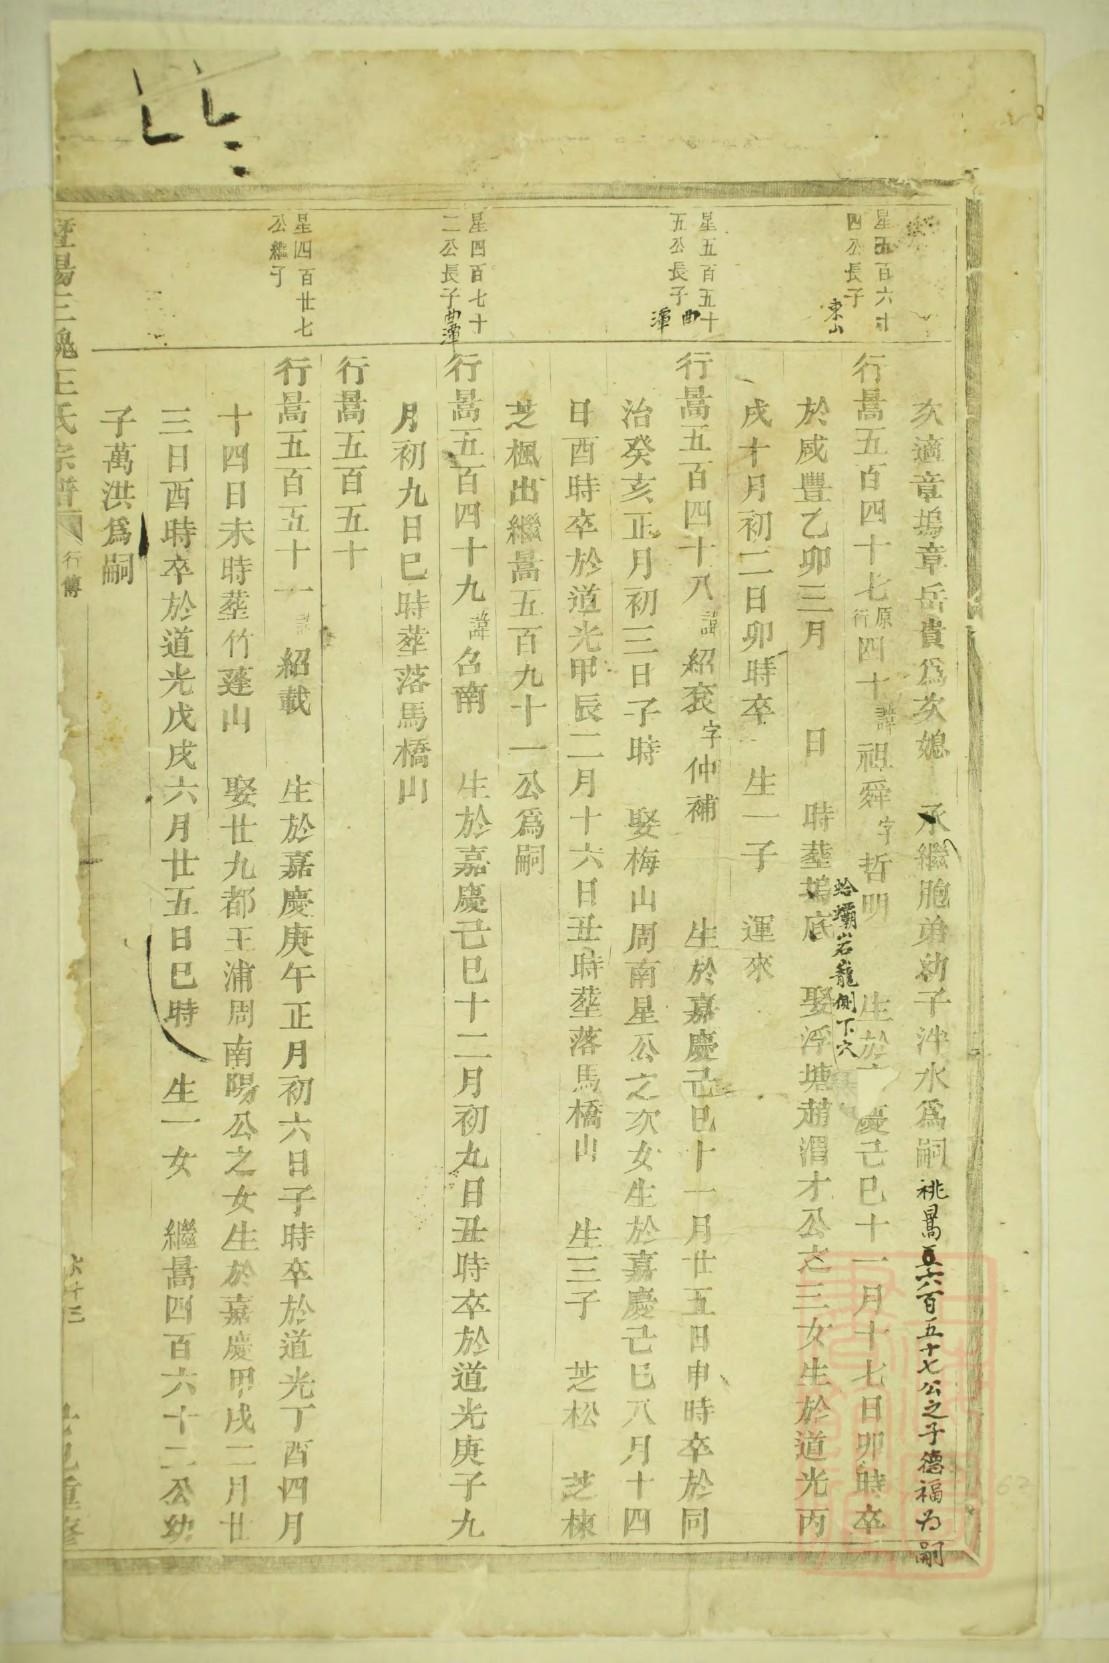 次適章塢章岳貴爲次媳 承繼胞弟幼子泮水爲嗣 祧暠五六百五十七公之子德福为嗣
星五百六十
四公長子
東山
行暠五百四十七原行四十諱祖舜字哲明 生於 慶己巳十一月十七日卯時卒
於咸豐乙卯三月 日 時塟塢底 娶浮塘趙渭才公之三女生於道光丙
蛤壩岩龍側下穴
戌十月初二日卯時卒 生一子 運來
星五百五十
五公長子
曲潭
行暠五百四十八諱紹袞字仲補 生於嘉慶己巳十一月廿五日申時卒於同
治癸亥正月初三日子時 娶梅山周南星公之次女生於嘉慶己巳八月十四
日酉時卒於道光甲辰二月十六日丑時塟落馬橋山 生三子 芝松 芝棟
芝楓出繼暠五百九十一公爲嗣
星四百七十
二公長子曲潭
行暠五百四十九諱名南 生於嘉慶己巳十二月初九日丑時卒於道光庚子九
月初九日巳時塟落馬橋山
行暠五百五十
星四百廿七
公繼子
行暠五百五十一諱紹載 生於嘉慶庚午正月初六日子時卒於道光丁酉四月
十四日未時塟竹蓬山 娶廿九都王浦周南陽公之女生於嘉慶甲戌二月廿
三日酉時卒於道光戊戌六月廿五日巳時 生一女 繼暠四百六十二公幼
子萬洪爲嗣
暨陽三槐王氏宗譜 行傳 六十三 重修